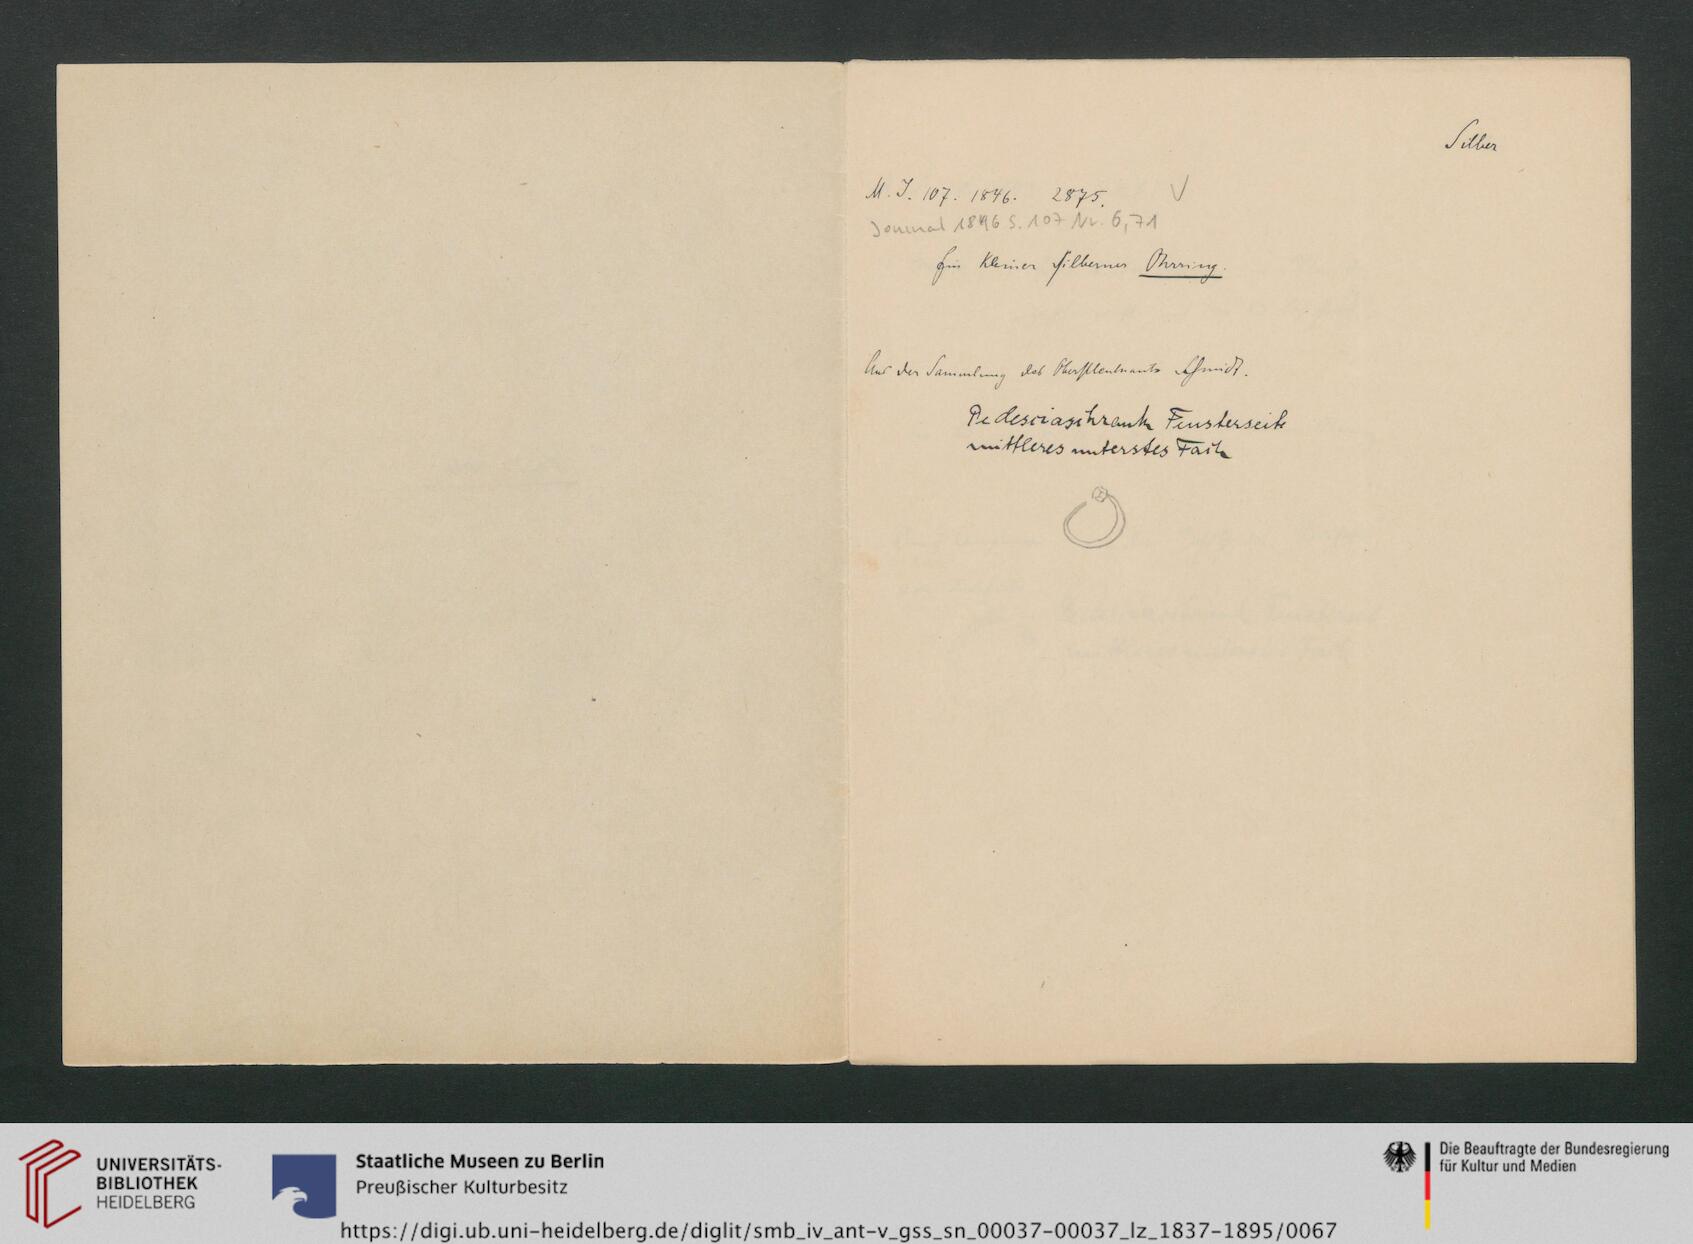 Silber
M. I. 107. 1846. 2875. V
Journal 1846 S. 107 Nr. 6,71
Ein kleiner silberner Ohrring.
Aus der Sammlung des Oberstleutnants Schmidt.
Pedesciaschrank Fensterseite
mittleres unterstes Fach
UNIVERSITÄTS-
BIBLIOTHEK
HEIDELBERG
Staatliche Museen zu Berlin
Preußischer Kulturbesitz
Die Beauftragte der Bundesregierung
für Kultur und Medien
https://digi.ub.uni-heidelberg.de/diglit/smb_iv_ant-v_gss_sn_00037-00037_lz_1837-1895/0067